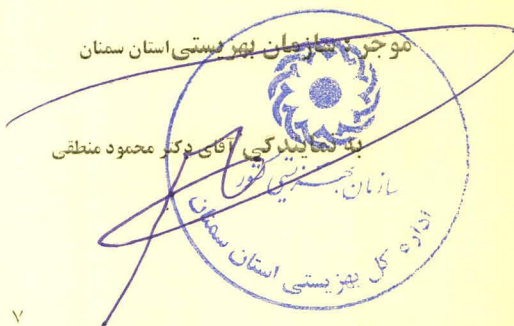 موجر : سازمان بهزیستی استان سمنان
به نمایندگی آقای دکتر محمود منطقی
سازمان بهزیستی کشور
اداره کل بهزیستی استان سمنان
۷